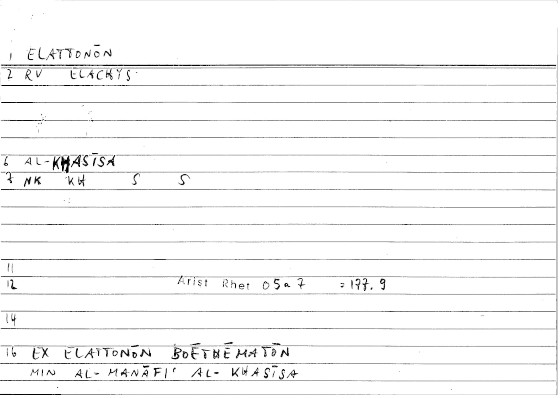 1 ELATTONŌN
2 RV ELACHYS
6 AL-KHASĪSA
7 NK KH S S
11
12 Arist Rhet 05a7 =177.9
14
16 EX ELATTONŌN BOĒTHĒMATŌN
MIN AL-MANĀFI' AL-KHASĪSA